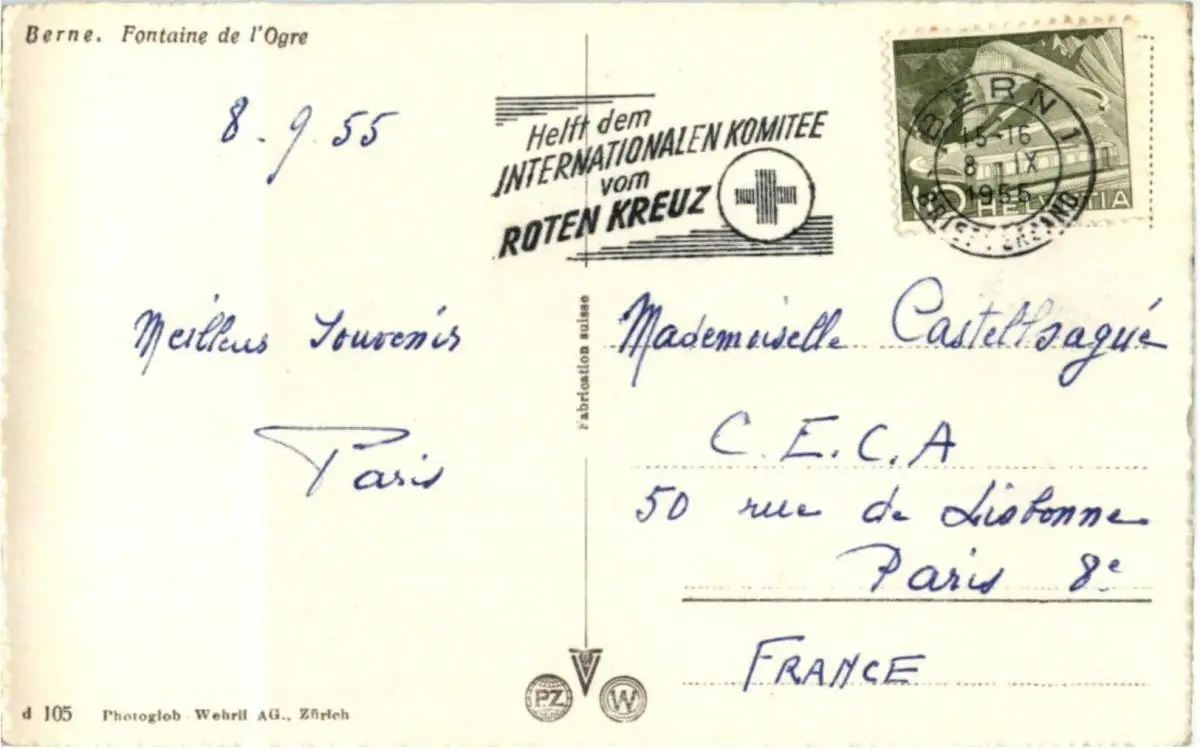 Berne. Fontaine de l'Ogre
8.9.55
Meilleurs Souvenirs
Paris
Helft dem
INTERNATIONALEN KOMITEE
vom
ROTEN KREUZ
BERN 1
15-16
8 IX
1955
10 HELVETIA
Fabrication suisse
Mademoiselle Casteltsagué
C.E.C.A
50 rue de Lisbonne
Paris 8e
FRANCE
PZ W
d 105 Photoglob-Wehrli AG., Zürich